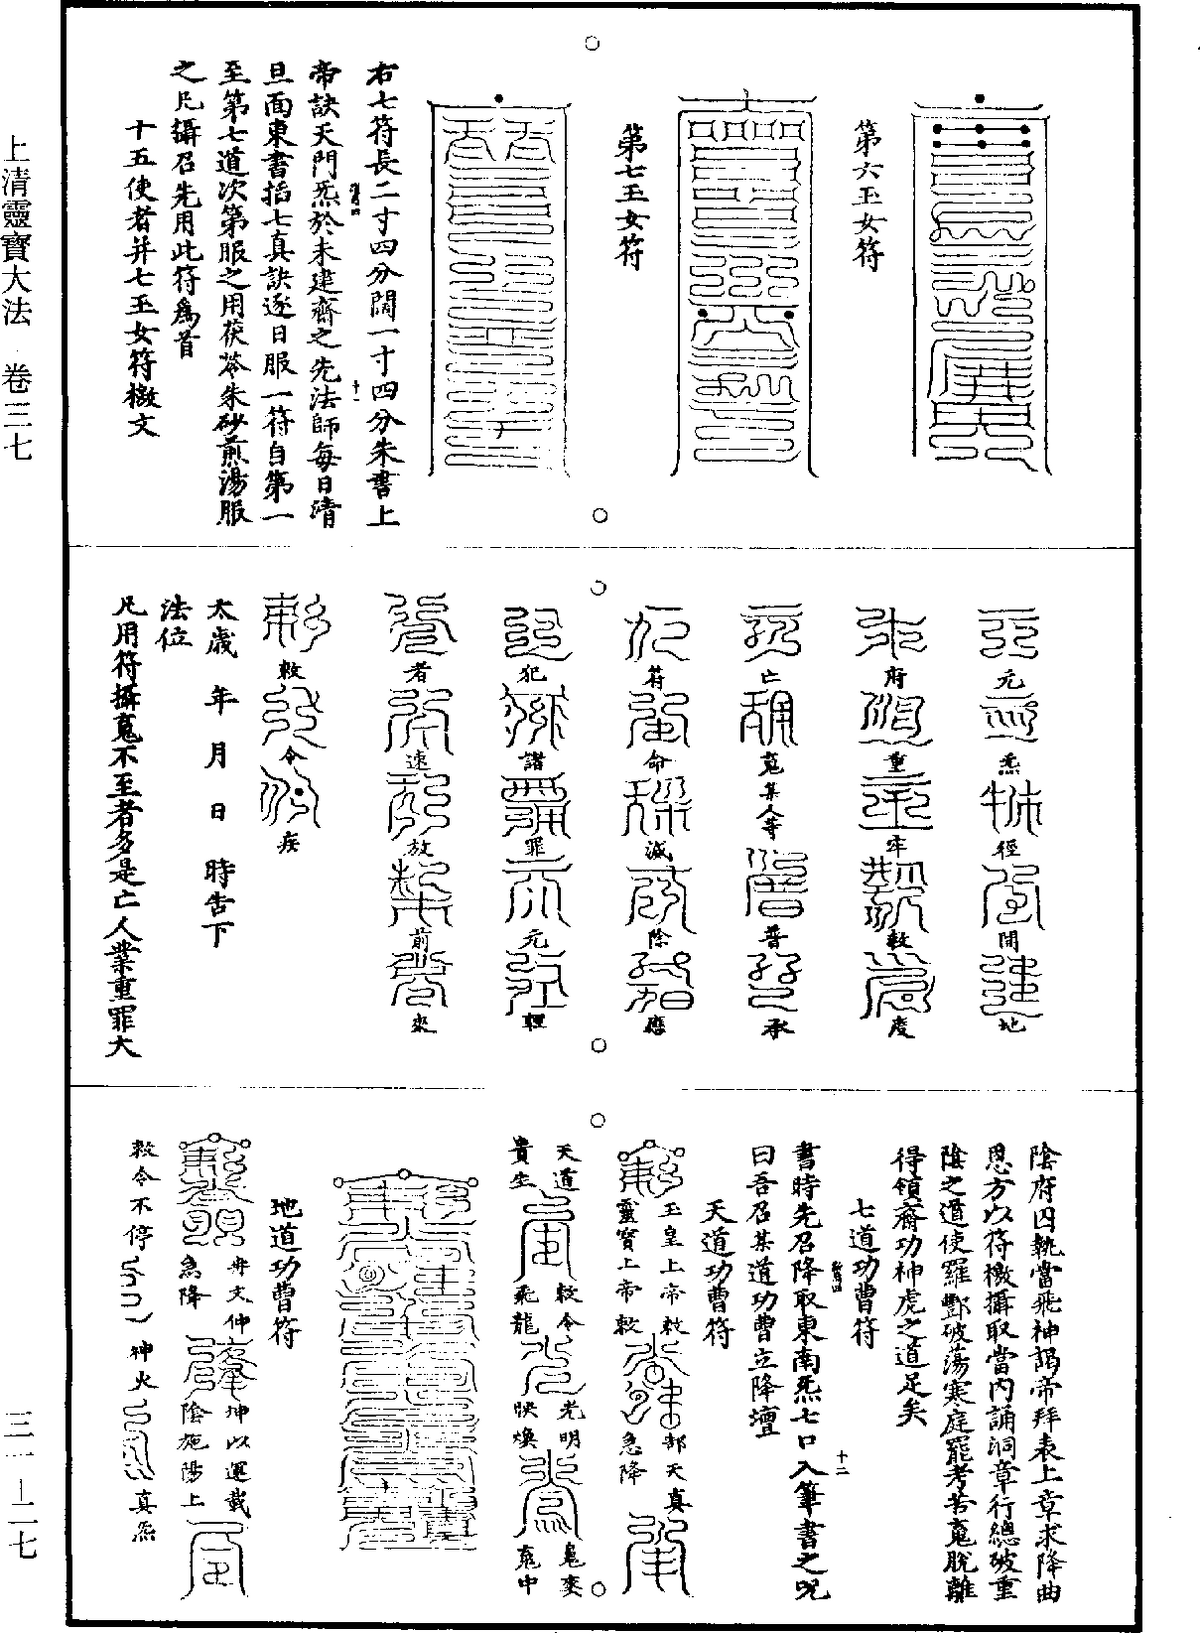 上清靈寶大法 卷三七
三一—二七
第六玉女符
第七玉女符
右七符長二寸四分闊一寸四分朱書上
帝訣天門炁於未建齋之先法師每日清
旦面東書掐七真訣逐日服一符自第一
至第七道次第服之用茯苓朱砂煎湯服
之凡攝召先用此符爲首
十五使者并七玉女符檄文
十一
元炁徑開地
府重牢敕度
亡魂某人等普承
符命滅除愆
犯諸罪元輕
者速放前來
敕令疾
太歲 年 月 日 時告下
法位
凡用符攝魂不至者多是亡人業重罪大
陰府囚執當飛神謁帝拜表上章求降曲
恩方以符檄攝取當內誦洞章行總破重
陰之道使羅酆破蕩寒庭罷考苦魂脫離
得領齋功神虎之道足矣
七道功曹符
十二
書時先召降取東南炁七口入筆書之呪
曰吾召某道功曹立降壇
天道功曹符
玉皇上帝敕
靈寶上帝敕
部天真
急降
天道
貴生
敕令
飛龍
光明
映煥
鬼來
魂中
地道功曹符
冊文仲
急降
坤以運載
陰施陽上
敕令不停
神火
真炁